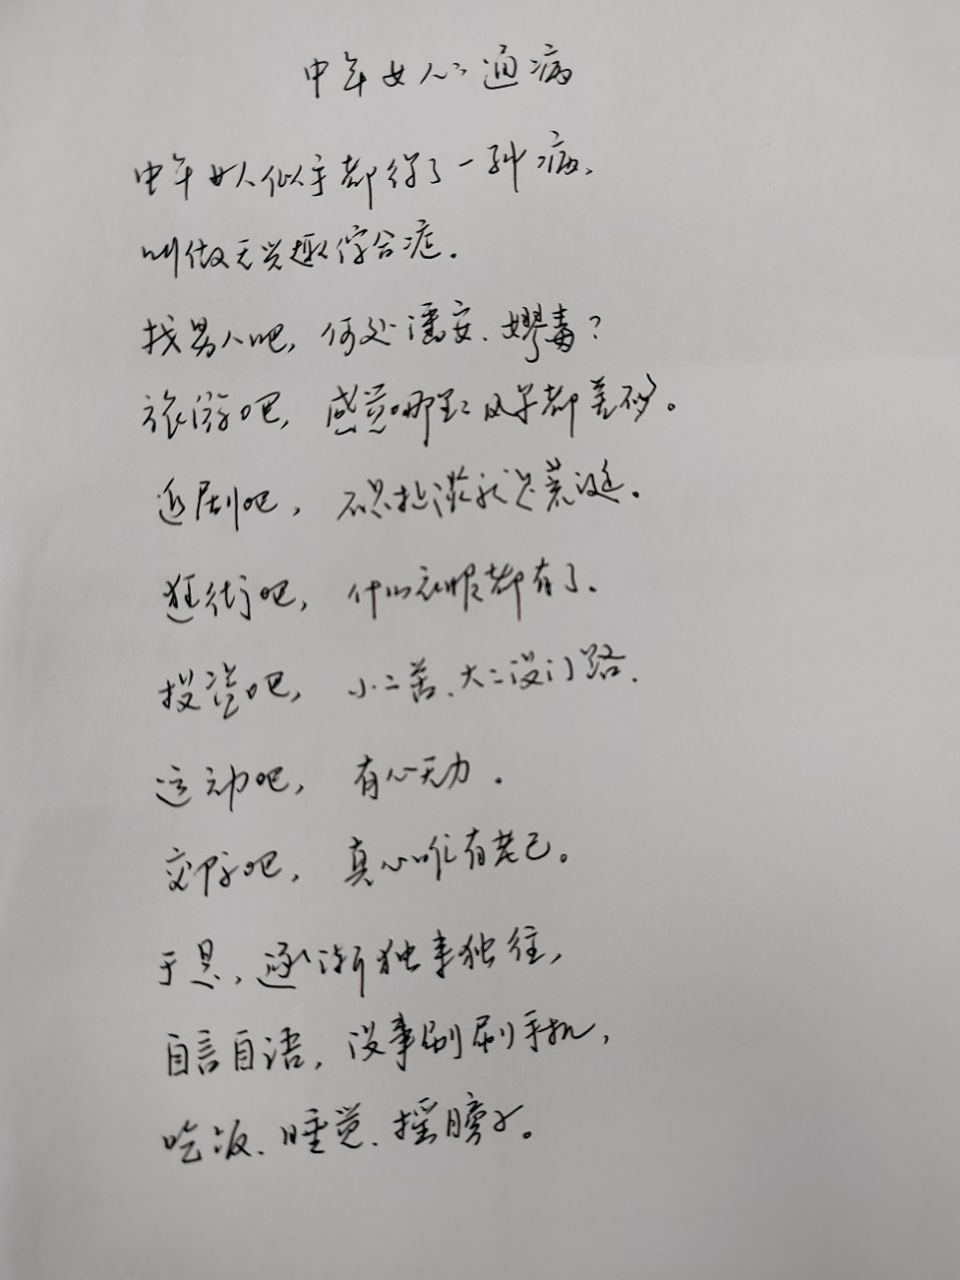 中年女人通病
中年女人似乎都得了一种病、
叫做无兴趣综合症.
找男人吧, 何处潘安、嫪毐?
旅游吧, 感觉哪里风景都差不多。
追剧吧, 不是扯淡就是荒诞。
逛街吧, 什么衣服都有了.
投资吧, 小二苦、大二没门路.
运动吧, 有心无力.
交际吧, 真心唯有老己。
于是, 逐渐独来独往,
自言自语, 没事刷刷手机,
吃饭、睡觉、摇膀子。